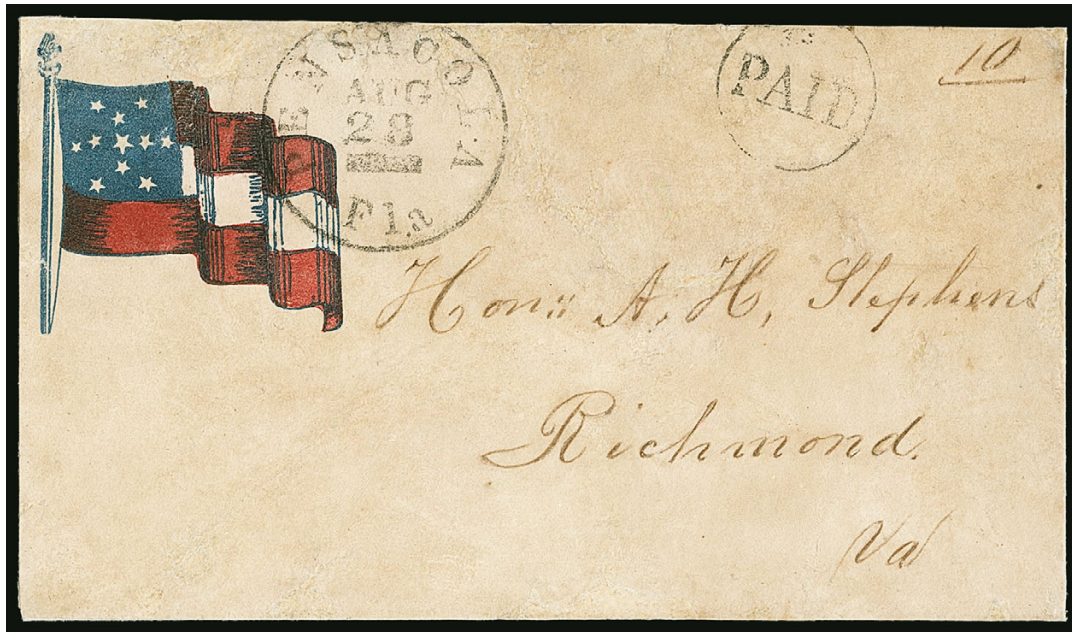 PENSACOLA
AUG
28
Fla
PAID
10
Hon:: A. H, Stephens
Richmond.
Va